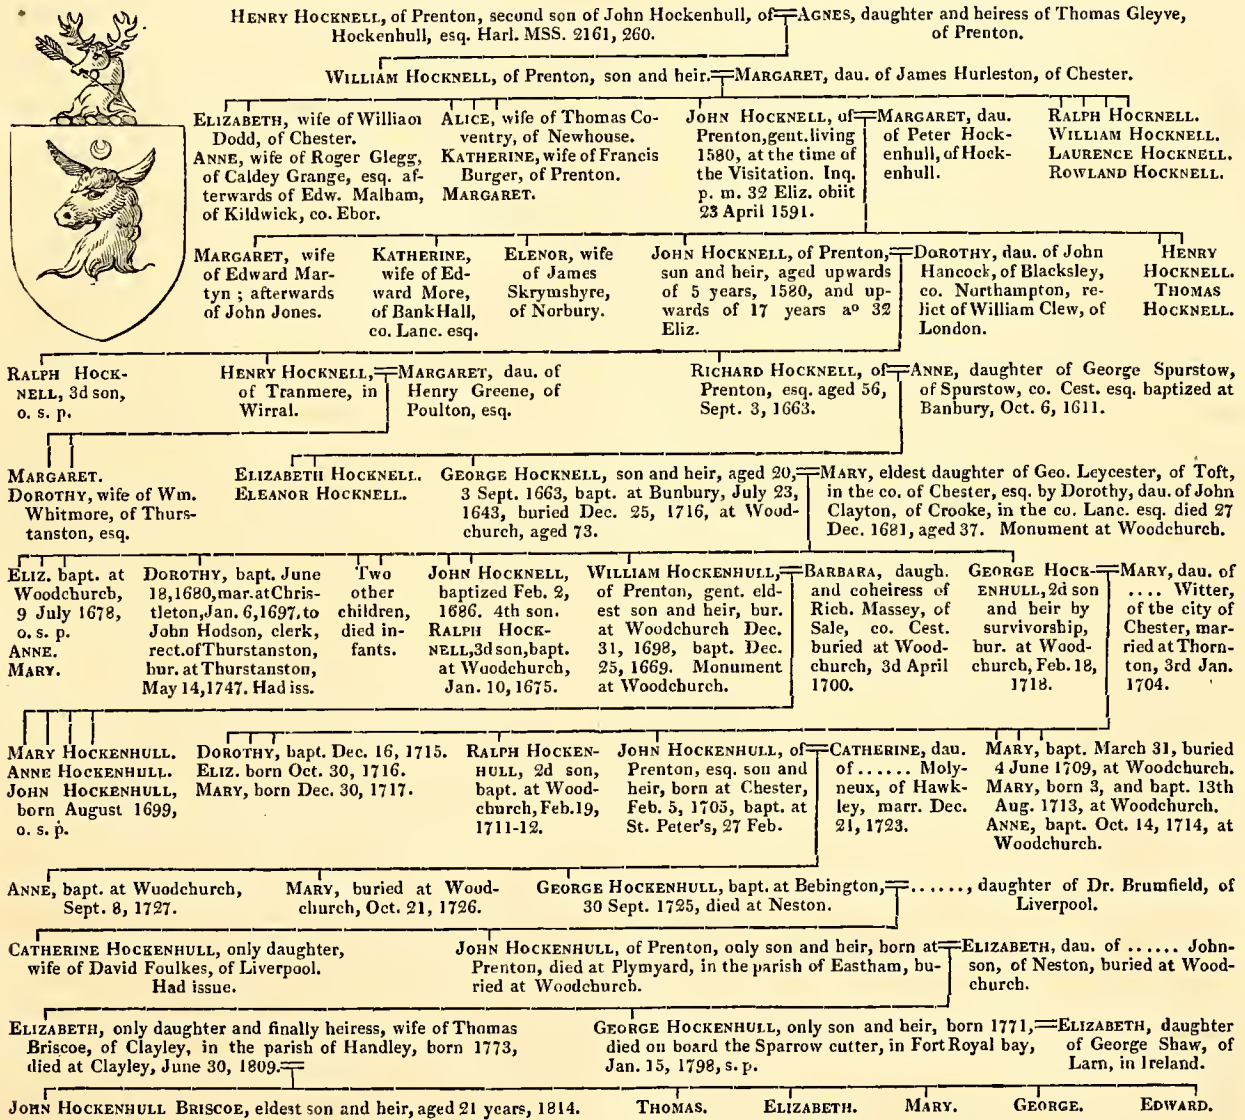 HENRY HOCKNELL, of Prenton, second son of John Hockenhull, of
Hockenhull, esq. Harl. MSS. 2161, 260.
AGNES, daughter and heiress of Thomas Gleyve,
of Prenton.
WILLIAM HOCKNELL, of Prenton, son and heir.
MARGARET, dau. of James Hurleston, of Chester.
ELIZABETH, wife of William
Dodd, of Chester.
ANNE, wife of Roger Glegg,
of Caldey Grange, esq. af-
terwards of Edw. Malham,
of Kildwick, co. Ebor.
ALICE, wife of Thomas Co-
ventry, of Newhouse.
KATHERINE, wife of Francis
Burger, of Prenton.
MARGARET.
JOHN HOCKNELL, of
Prenton, gent. living
1580, at the time of
the Visitation. Inq.
p. m. 32 Eliz. obiit
23 April 1591.
MARGARET, dau.
of Peter Hock-
enhull, of Hock-
enhull.
RALPH HOCKNELL.
WILLIAM HOCKNELL.
LAURENCE HOCKNELL.
ROWLAND HOCKNELL.
MARGARET, wife
of Edward Mar-
tyn ; afterwards
of John Jones.
KATHERINE,
wife of Ed-
ward More,
of BankHall,
co. Lanc. esq.
ELENOR, wife
of James
Skrymshyre,
of Norbury.
JOHN HOCKNELL, of Prenton,
son and heir, aged upwards
of 5 years, 1580, and up-
wards of 17 years aº 32
Eliz.
DOROTHY, dau. of John
Hancock, of Blacksley,
co. Northampton, re-
lict of William Clew, of
London.
HENRY
HOCKNELL.
THOMAS
HOCKNELL.
RALPH HOCK-
NELL, 3d son,
o. s. p.
HENRY HOCKNELL,
of Tranmere, in
Wirral.
MARGARET, dau. of
Henry Greene, of
Poulton, esq.
RICHARD HOCKNELL, of
Prenton, esq. aged 56,
Sept. 3, 1663.
ANNE, daughter of George Spurstow,
of Spurstow, co. Cest. esq. baptized at
Banbury, Oct. 6, 1611.
MARGARET.
DOROTHY, wife of Wm.
Whitmore, of Thurs-
tanston, esq.
ELIZABETH HOCKNELL.
ELEANOR HOCKNELL.
GEORGE HOCKNELL, son and heir, aged 20,
3 Sept. 1663, bapt. at Bunbury, July 23,
1643, buried Dec. 25, 1716, at Wood-
church, aged 73.
MARY, eldest daughter of Geo. Leycester, of Toft,
in the co. of Chester, esq. by Dorothy, dau. of John
Clayton, of Crooke, in the co. Lanc. esq. died 27
Dec. 1681, aged 37. Monument at Woodchurch.
ELIZ. bapt. at
Woodchurch,
9 July 1678,
o. s. p.
ANNE.
MARY.
DOROTHY, bapt. June
18,1680, mar. at Chris-
tleton, Jan. 6,1697, to
John Hodson, clerk,
rect. of Thurstanston,
bur. at Thurstanston,
May 14,1747. Had iss.
Two
other
children,
died in-
fants.
JOHN HOCKNELL,
baptized Feb. 2,
1686. 4th son.
RALPH HOCK-
NELL, 3d son, bapt.
at Woodchurch,
Jan. 10, 1675.
WILLIAM HOCKENHULL,
of Prenton, gent. eld-
est son and heir, bur.
at Woodchurch Dec.
31, 1698, bapt. Dec.
25, 1669. Monument
at Woodchurch.
BARBARA, daugh.
and coheiress of
Rich. Massey, of
Sale, co. Cest.
buried at Wood-
church, 3d April
1700.
GEORGE HOCK-
ENHULL, 2d son
and heir by
survivorship,
bur. at Wood-
church, Feb. 18,
1718.
MARY, dau. of
.... Witter,
of the city of
Chester, mar-
ried at Thorn-
ton, 3rd Jan.
1704.
MARY HOCKENHULL.
ANNE HOCKENHULL.
JOHN HOCKENHULL,
born August 1699,
o. s. p.
DOROTHY, bapt. Dec. 16, 1715.
ELIZ. born Oct. 30, 1716.
MARY, born Dec. 30, 1717.
RALPH HOCKEN-
HULL, 2d son,
bapt. at Wood-
church, Feb. 19,
1711-12.
JOHN HOCKENHULL, of
Prenton, esq. son and
heir, born at Chester,
Feb. 5, 1705, bapt. at
St. Peter's, 27 Feb.
CATHERINE, dau.
of ...... Moly-
neux, of Hawk-
ley, marr. Dec.
21, 1723.
MARY, bapt. March 31, buried
4 June 1709, at Woodchurch.
MARY, born 3, and bapt. 13th
Aug. 1713, at Woodchurch.
ANNE, bapt. Oct. 14, 1714, at
Woodchurch.
ANNE, bapt. at Woodchurch,
Sept. 8, 1727.
MARY, buried at Wood-
church, Oct. 21, 1726.
GEORGE HOCKENHULL, bapt. at Bebington,
30 Sept. 1725, died at Neston.
......, daughter of Dr. Brumfield, of
Liverpool.
CATHERINE HOCKENHULL, only daughter,
wife of David Foulkes, of Liverpool.
Had issue.
JOHN HOCKENHULL, of Prenton, only son and heir, born at
Prenton, died at Plymyard, in the parish of Eastham, bu-
ried at Woodchurch.
ELIZABETH, dau. of ...... John-
son, of Neston, buried at Wood-
church.
ELIZABETH, only daughter and finally heiress, wife of Thomas
Briscoe, of Clayley, in the parish of Handley, born 1773,
died at Clayley, June 30, 1809.
GEORGE HOCKENHULL, only son and heir, born 1771,
died on board the Sparrow cutter, in Fort Royal bay,
Jan. 15, 1798, s. p.
ELIZABETH, daughter
of George Shaw, of
Larn, in Ireland.
JOHN HOCKENHULL BRISCOE, eldest son and heir, aged 21 years, 1814.
THOMAS.
ELIZABETH.
MARY.
GEORGE.
EDWARD.